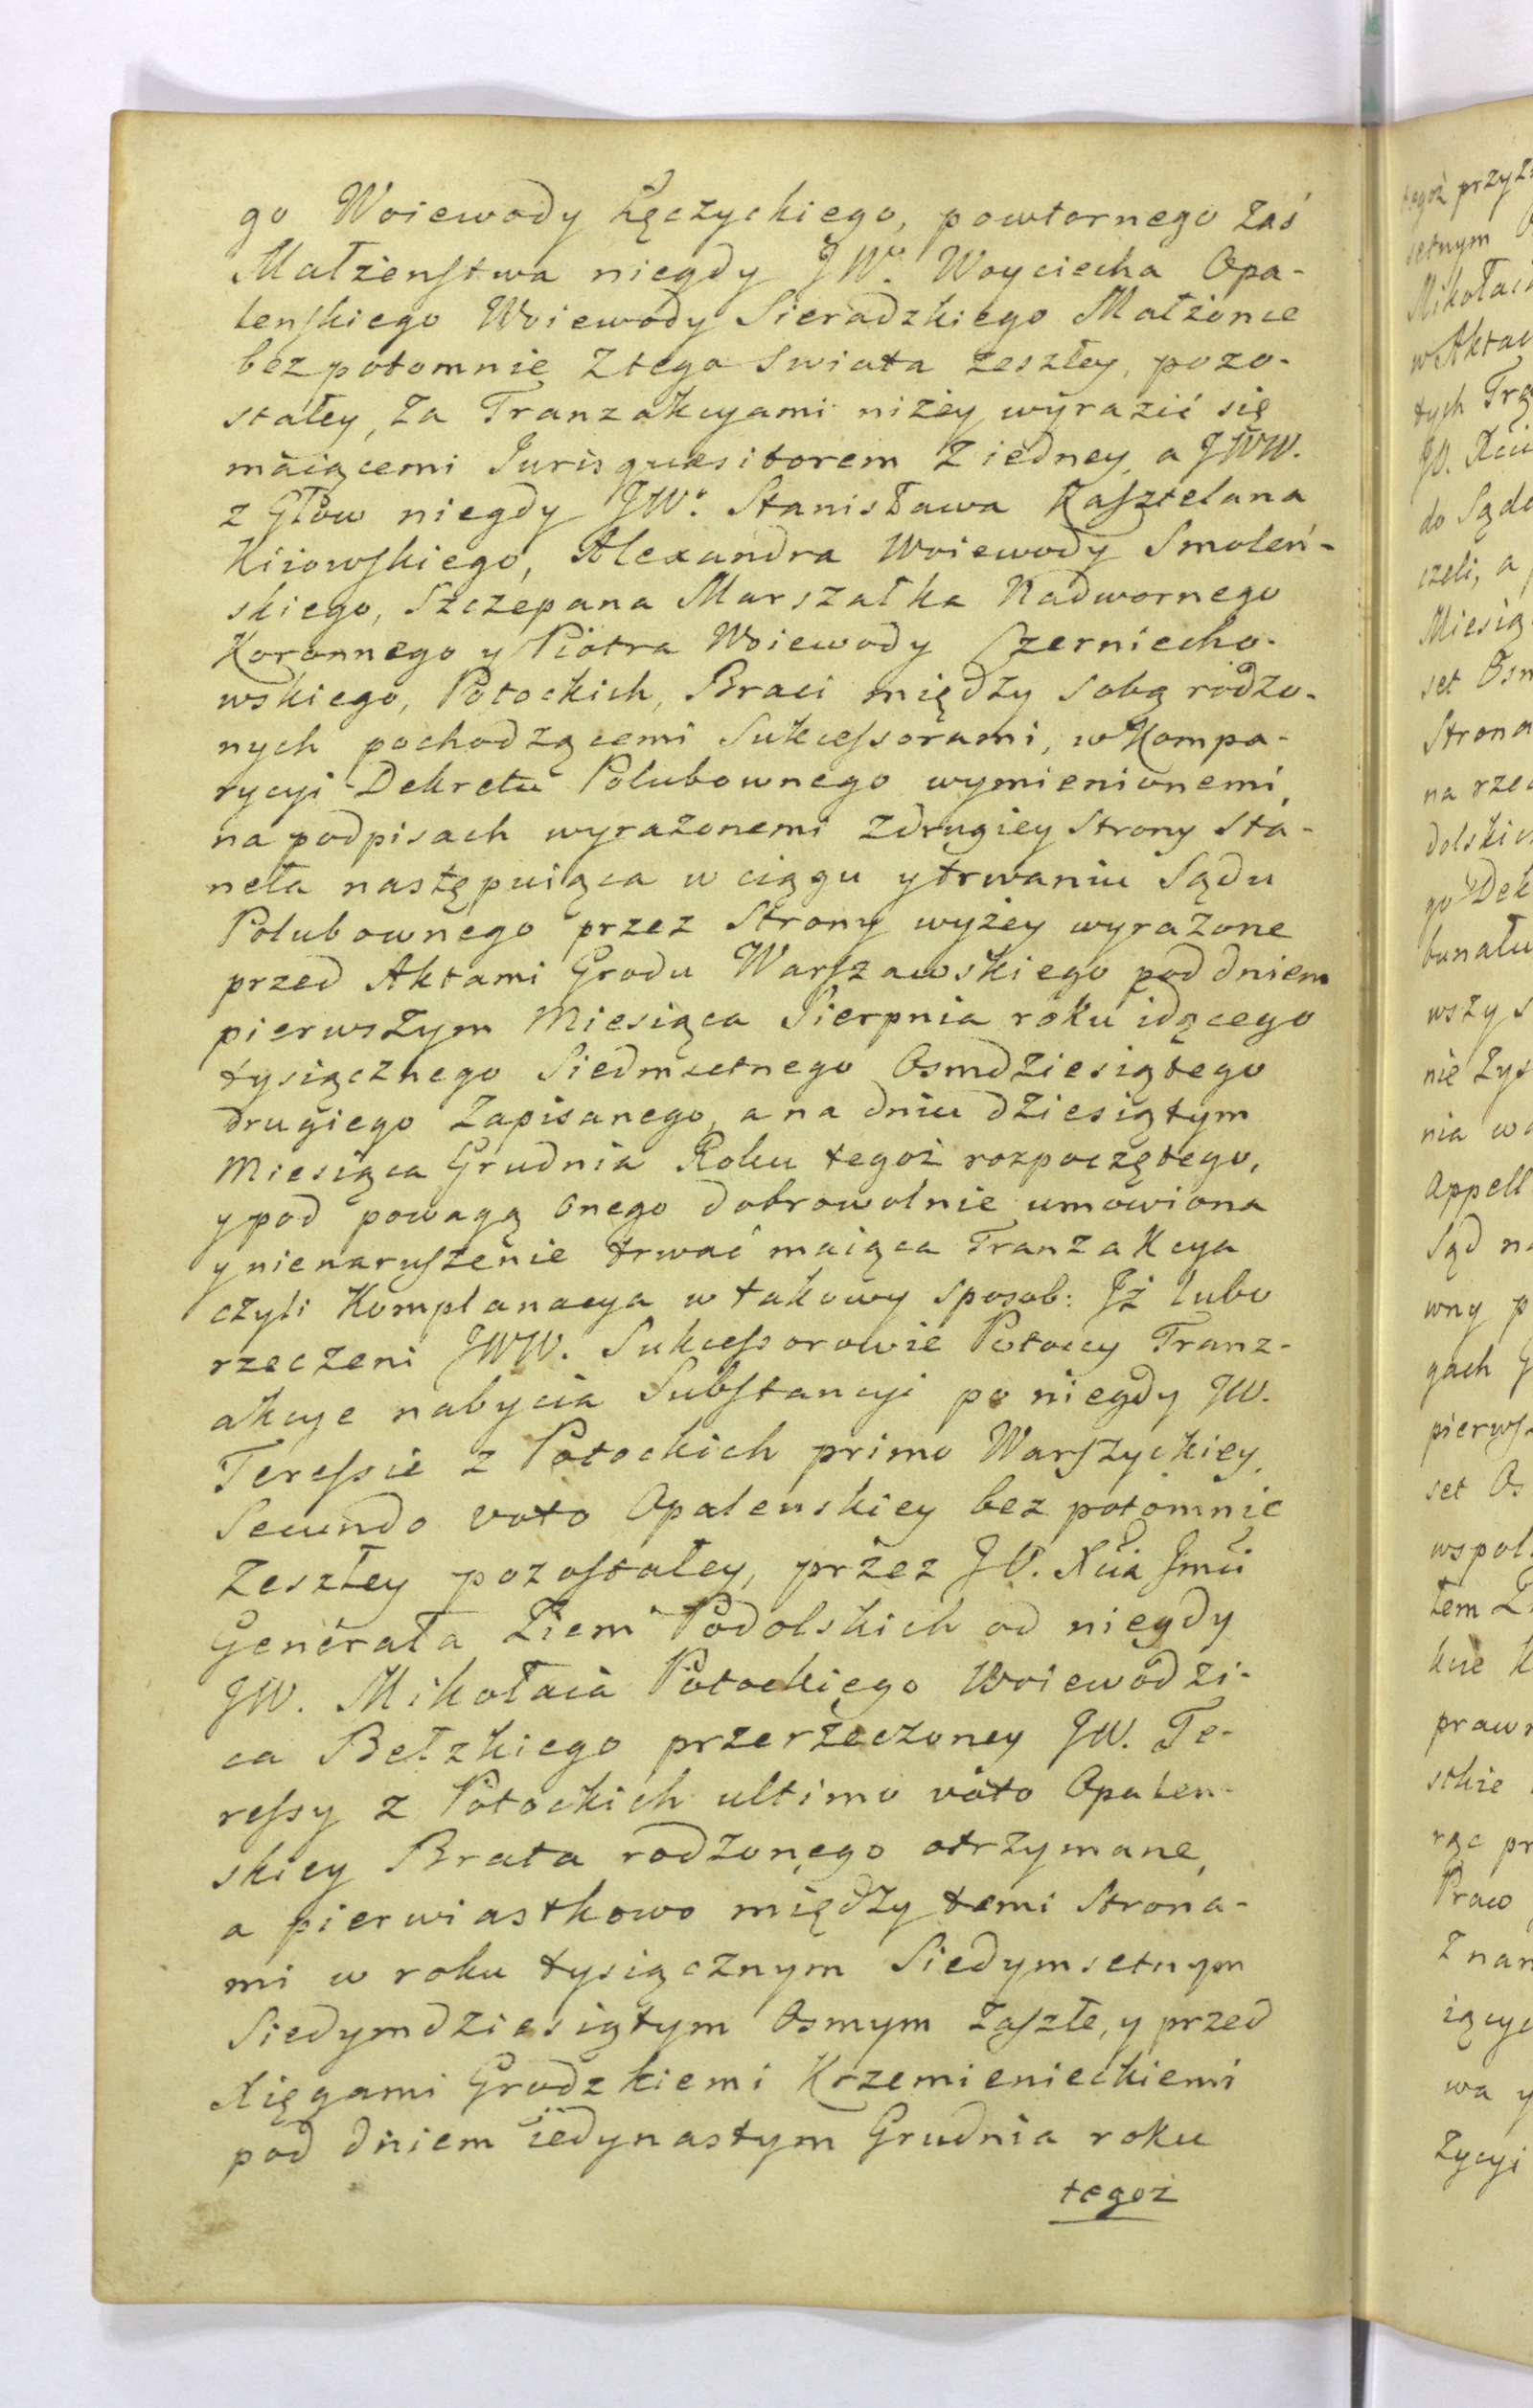 go Woiewody Łęczyckiego, powtornego Zaś
Małżenſtwa niegdy JWo. Woyciecha Opa-
lenſkiego Woiewody Sieradzkiego Małżonce
bezpotomnie Ztego Swiata zeszłey, pozo-
stałey, Za Tranzakcyami niżey wyrazić się
maiącemi Jurisquæsitorem Ziedney, a JWW.
z Głów niegdy JWo. Stanisława Kaſztelana
Kiiowſkiego, Alexandra Woiewody Smoleń-
skiego, Szczepana Marszałka Nadwornego
Koronnego y Piotra Woiewody Czerniecho-
wskiego, Potockich, Braci między Sobą rodzo-
nych pochodzącemi Sukceſsorami, w Kompa-
rycyi Dekretu Polubownego wymienionemi,
na podpisach wyrażonemi Zdrugiey Strony Sta-
neła następuiąca w ciągu y trwaniu Sądu
Polubownego przez Strony wyżey wyrażone
przed Aktami Grodu Warſzawskiego pod dniem
pierwszym Miesiąca Sierpnia roku idącego
tysiącznego Siedmsetnego Osmdziesiątego
drugiego Zapisanego, a na dniu dziesiątym
Miesiąca Grudnia Roku tegoż rozpoczętego,
y pod powagą onego dobrowolnie umowiona
y nienaruſzenie trwać maiąca Tranzakcya
czyli Komplanacya w takowy sposob: Jż lubo
rzeczeni JWW. Sukceſsorowie Potoccy Tranz-
akcye nabycia Subſtancyi po niegdy JW.
Tereſsie z Potockich primo Warſzyckiey,
Secundo voto Opalenskiey bez potomnie
Zeszłey pozoſtałey, przez JO. Xcia Jmci
Generała Ziem Podolskich od niegdy
JW. Mikołaia Potockiego Woiewodzi-
ca Bełzkiego przerzeczoney JW. Te-
reſsy z Potockich ultimo voto Opalen-
skiey Brata rodzonego otrzymane,
a pierwiastkowo między temi Strona-
mi w roku tysiącznym Siedymsetnym
Siedymdziesiątym Osmym Zaſzłe, y przed
Xięgami Grodzkiemi Krzemienieckiemi
pod dniem iedynastym Grudnia roku
tegoż
tegoż
setnym
w Aktac
tych
do
czeli, a
set
Strona
na
bunału
nie
nia
Appell
Sąd
wny
gach
set
tem
Praw
wa y
zycyi